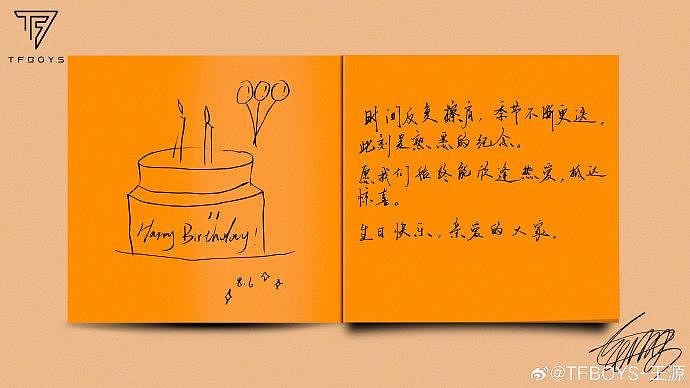 TF
TFBOYS
Happy Birthday!
8.6
时间反复擦肩，季节不断更迭，
此刻是熟悉的纪念。
愿我们始终能欣逢热爱，抵达
惊喜。
生日快乐，亲爱的大家。
@TFBOYS-王源